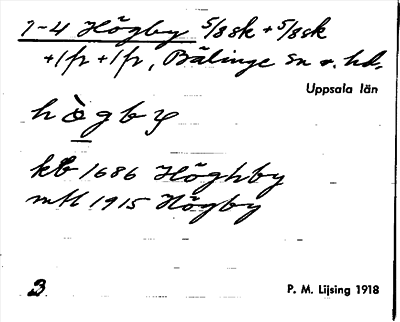 1-4 Högby 5/8 sk + 5/8 sk
+ 1 fr + 1 fr, Bälinge sn o. hd.
Uppsala län
hògby
kb 1686 Höghby
mtl 1915 Högby
3
P. M. Lijsing 1918